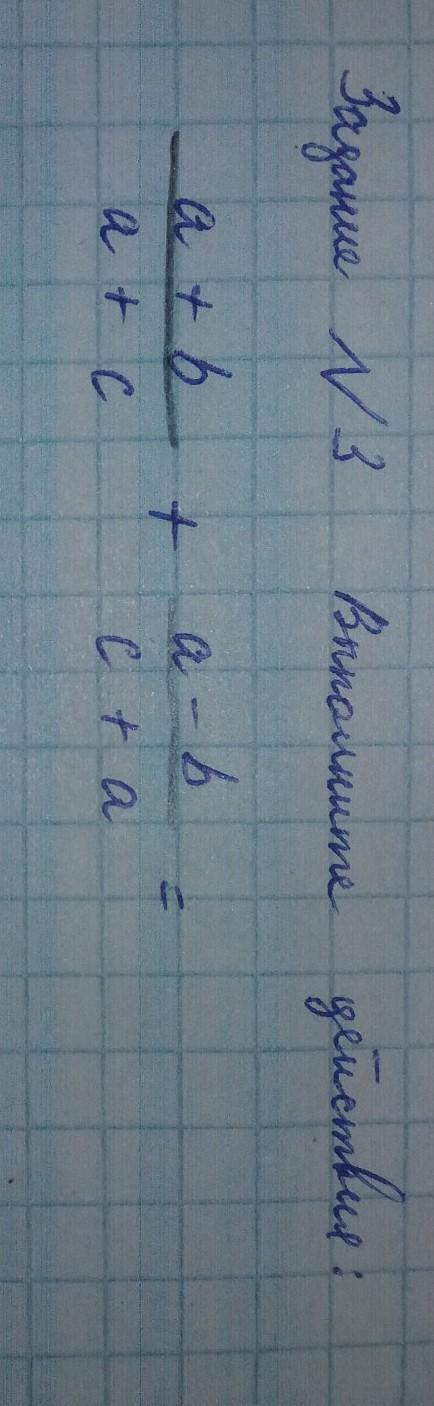 Задание №3 Выполните действия:
a + b / a + c + a - b / c + a =